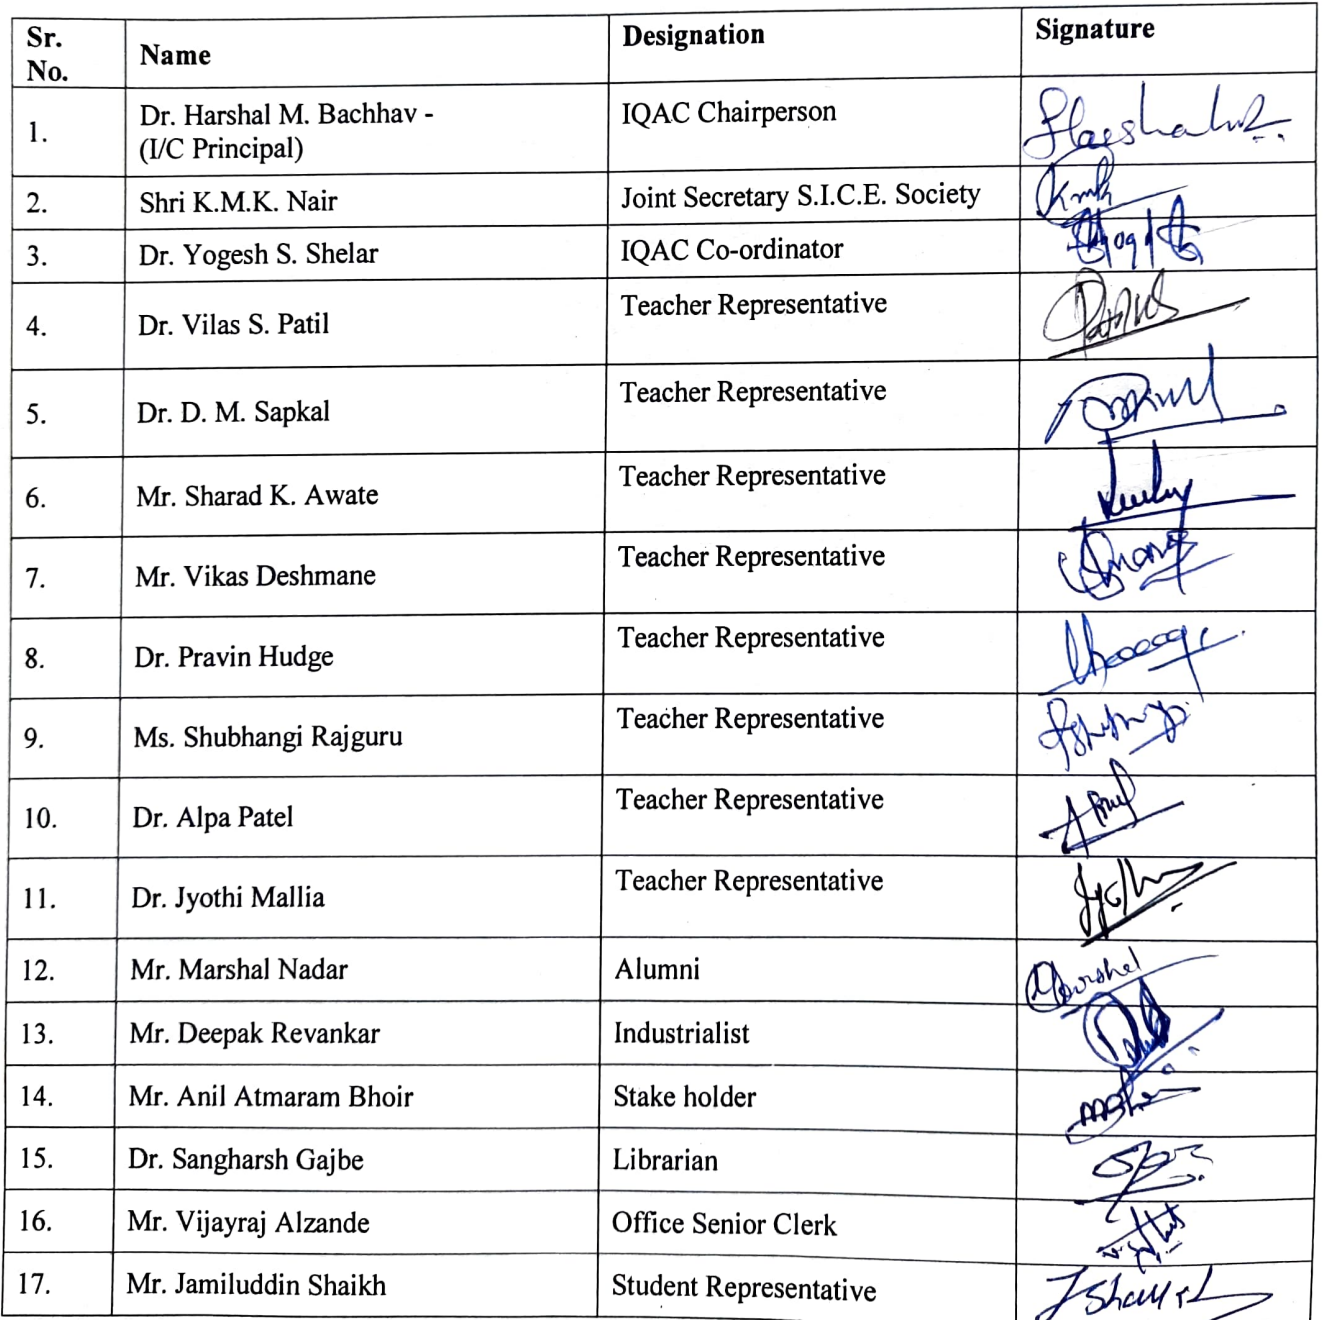 Sr. No. Name Designation Signature
1. Dr. Harshal M. Bachhav - IQAC Chairperson
(I/C Principal)
2. Shri K.M.K. Nair Joint Secretary S.I.C.E. Society
3. Dr. Yogesh S. Shelar IQAC Co-ordinator
4. Dr. Vilas S. Patil Teacher Representative
5. Dr. D. M. Sapkal Teacher Representative
6. Mr. Sharad K. Awate Teacher Representative
7. Mr. Vikas Deshmane Teacher Representative
8. Dr. Pravin Hudge Teacher Representative
9. Ms. Shubhangi Rajguru Teacher Representative
10. Dr. Alpa Patel Teacher Representative
11. Dr. Jyothi Mallia Teacher Representative
12. Mr. Marshal Nadar Alumni
13. Mr. Deepak Revankar Industrialist
14. Mr. Anil Atmaram Bhoir Stake holder
15. Dr. Sangharsh Gajbe Librarian
16. Mr. Vijayraj Alzande Office Senior Clerk
17. Mr. Jamiluddin Shaikh Student Representative